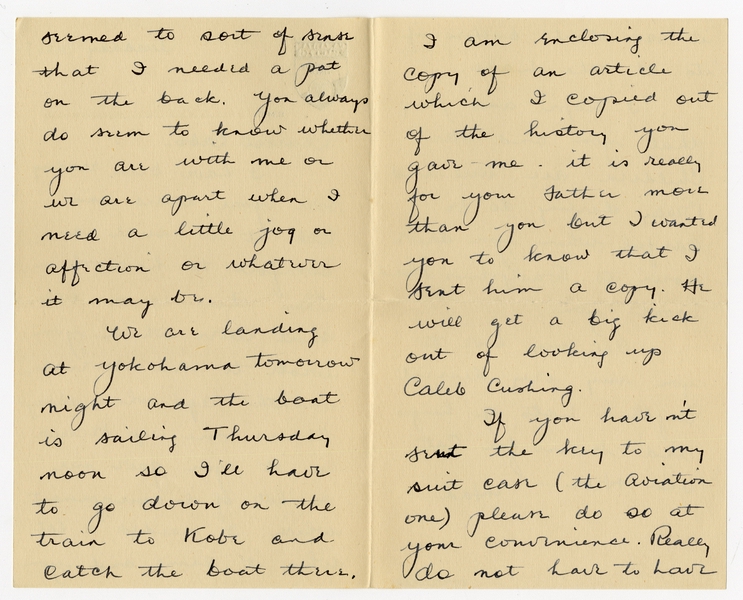 seemed to sort of sense
that I needed a pat
on the back. You always
do seem to know whether
you are with me or
we are apart when I
need a little jog or
affection or whatever
it may be.
We are landing
at Yokohama tomorrow
night and the boat
is sailing Thursday
noon so I'll have
to go down on the
train to Kobe and
catch the boat there.
I am enclosing the
copy of an article
which I copied out
of the history you
gave me. it is really
for your father more
than you but I wanted
you to know that I
sent him a copy. He
will get a big kick
out of looking up
Caleb Cushing.
If you have n't
sent the key to my
suit case (the aviation
one) please do so at
your convenience. Really
do not have to have